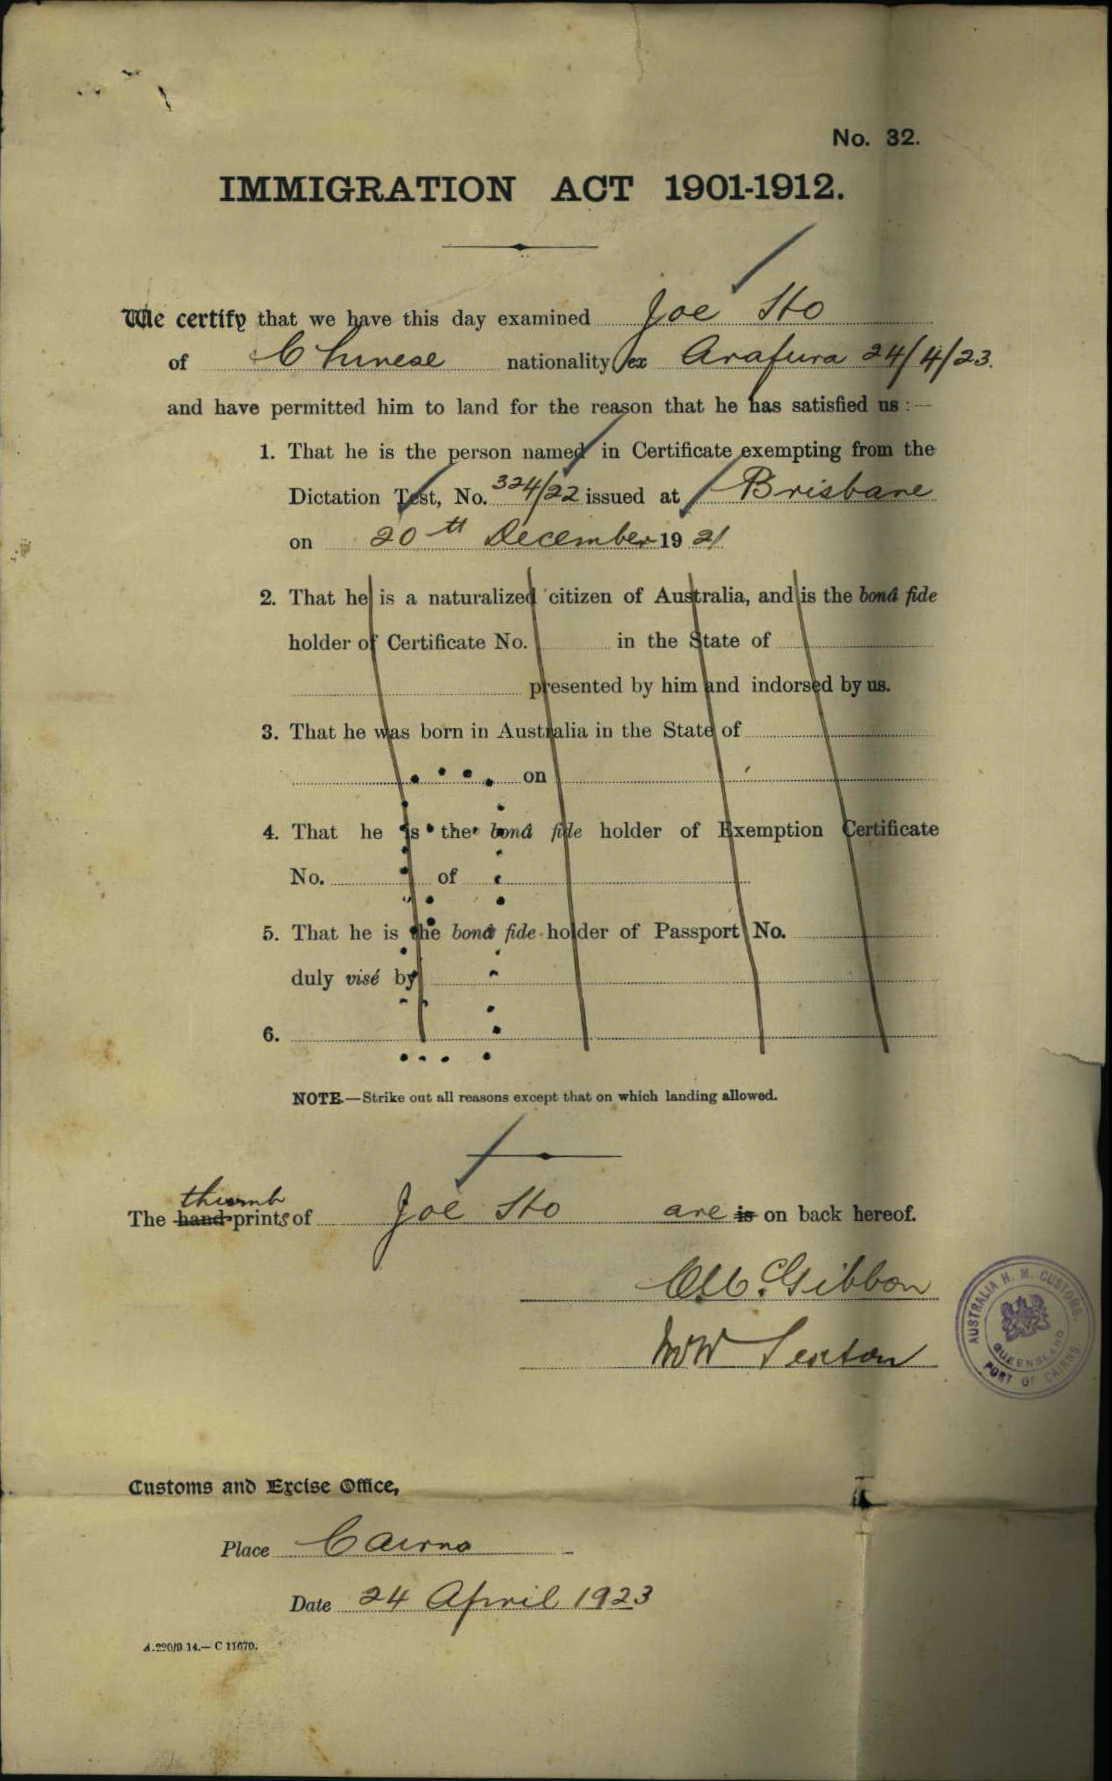 No. 32.
IMMIGRATION ACT 1901-1912.
We certify that we have this day examined Joe Sto
of Chinese nationality ex Arafura 24/4/23.
and have permitted him to land for the reason that he has satisfied us :—
1. That he is the person named in Certificate exempting from the
Dictation Test, No. 324/22 issued at Brisbane
on 20th December 1921
2. That he is a naturalized citizen of Australia, and is the bonâ fide
holder of Certificate No. in the State of
presented by him and indorsed by us.
3. That he was born in Australia in the State of
on
4. That he is the bonâ fide holder of Exemption Certificate
No. of
5. That he is the bonâ fide holder of Passport No.
duly visé by
6.
NOTE.—Strike out all reasons except that on which landing allowed.
thumb
The hand-prints of Joe Sto are is on back hereof.
Gibbon
WW Sexton
AUSTRALIA H. M. CUSTOMS.
QUEENSLAND
PORT OF CAIRNS
Customs and Excise Office,
Place Cairns
Date 24 April 1923
A.220/9.14.—C 11670.